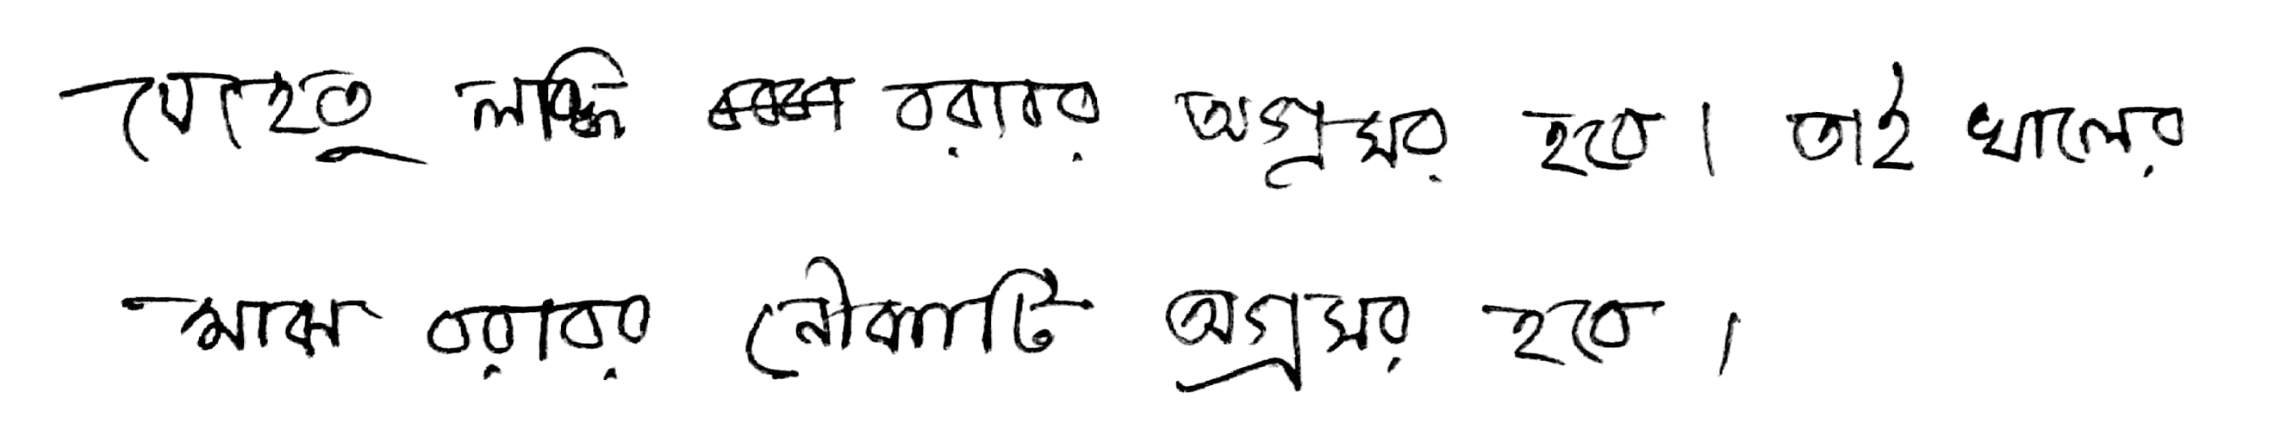 যেহেতু লব্ধি বরাবর অগ্রসর হবে। তাই খালের
মাঝ বরাবর নৌকাটি অগ্রসর হবে।